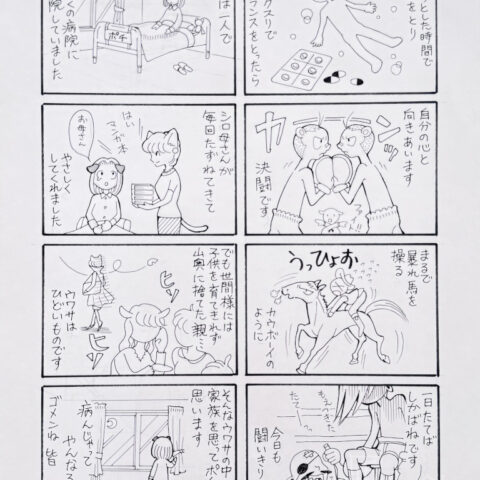 とした時間で
をとり
クスリで
ランスをとったら
自分の心と
向きあいます
ガ
ンッ
決闘です
まるで
暴れ馬を
操る
うっひょおお
カウボーイの
ように
一日たてば
しかばねです
もえつきた
たて
今日も
闘いきり
は一人で
くの病院に
院していました
ポチ
シロ母さんが
毎回たずねてきて
はい
マンガ本
お母さん
やさしく
してくれました
でも世間様には
子供を育てきれず
山奥に捨てた親…
ヒソ
ヒソ
ウワサは
ひどいものです
そんなウワサの中
家族を思ってポ
思います
病んじゃって
やんなる
ゴメンね 皆